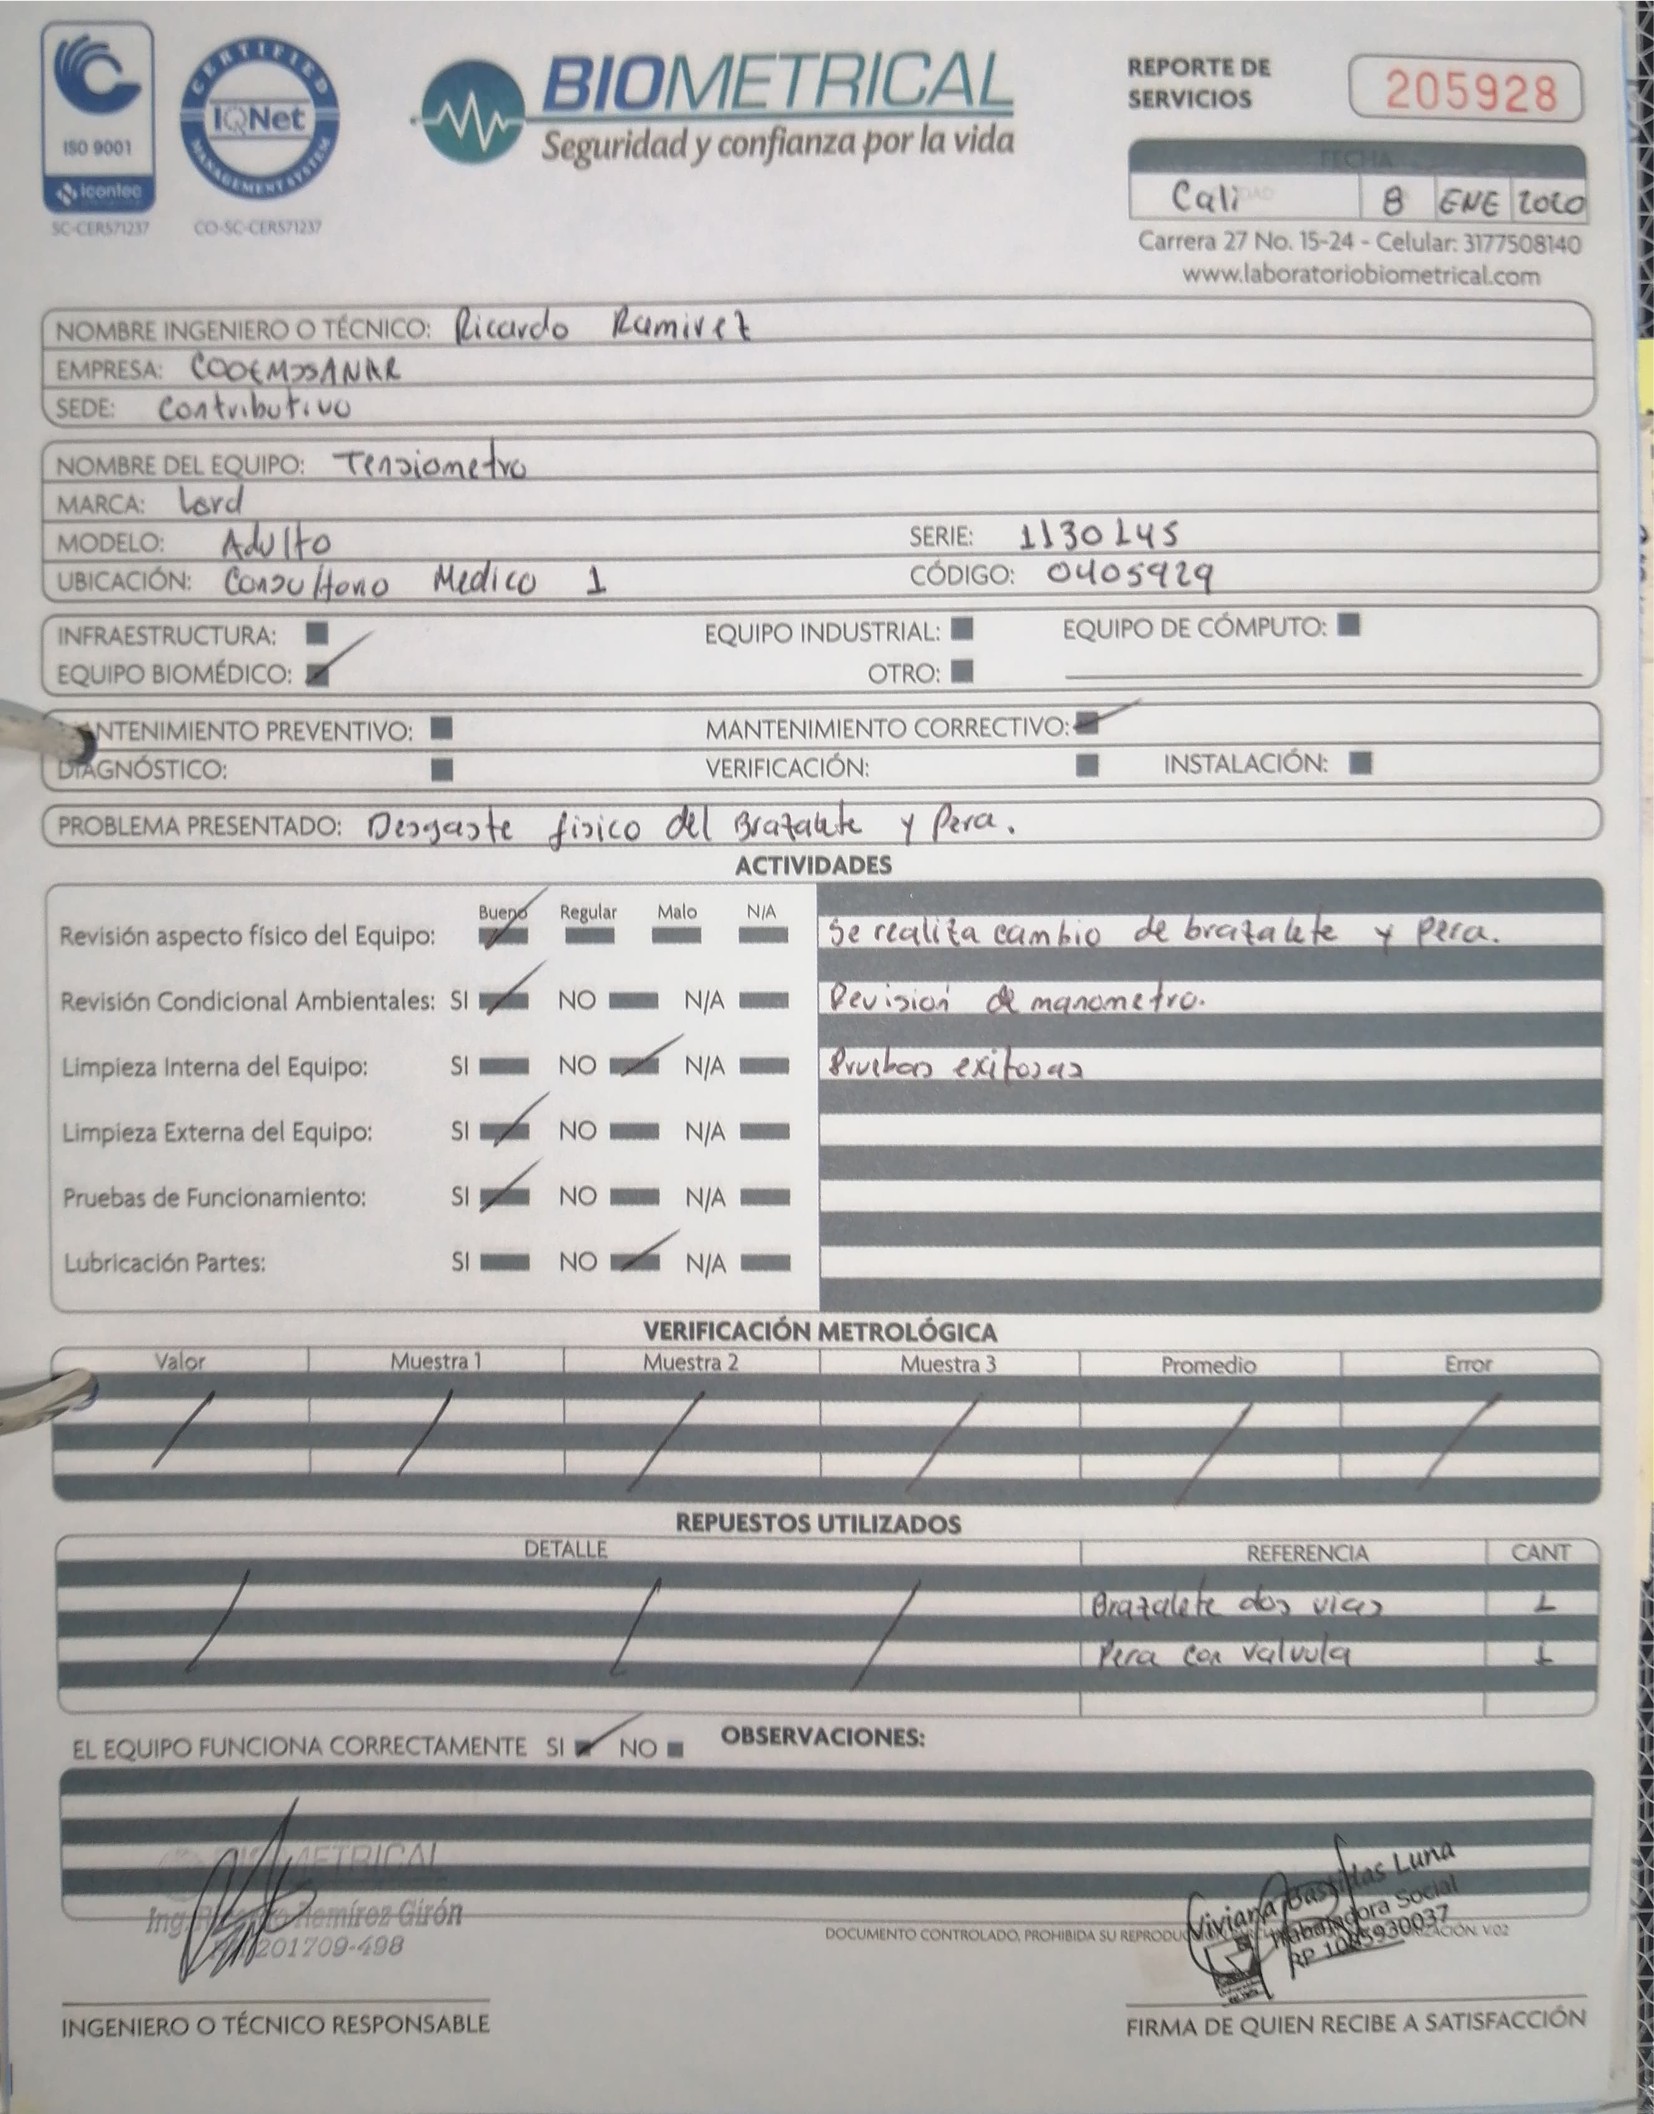 ISO 9001
icontec
SC-CER571237
CERTIFIED
IQNet
MANAGEMENT SYSTEM
CO-SC-CER571237
BIOMETRICAL
Seguridad y confianza por la vida
REPORTE DE
SERVICIOS
205928
FECHA
Cali 8 ENE 2020
Carrera 27 No. 15-24 - Celular: 3177508140
www.laboratoriobiometrical.com
NOMBRE INGENIERO O TÉCNICO: Ricardo Ramirez
EMPRESA: COOEMSSANAR
SEDE: Contributivo
NOMBRE DEL EQUIPO: Tensiometro
MARCA: Lord
MODELO: Adulto SERIE: 1130145
UBICACIÓN: Consultorio Medico 1 CÓDIGO: 0405929
INFRAESTRUCTURA: EQUIPO INDUSTRIAL: EQUIPO DE CÓMPUTO:
EQUIPO BIOMÉDICO: OTRO:
NTENIMIENTO PREVENTIVO: MANTENIMIENTO CORRECTIVO:
DIAGNÓSTICO: VERIFICACIÓN: INSTALACIÓN:
PROBLEMA PRESENTADO: Desgaste fisico del Brazalete y Pera.
ACTIVIDADES
Bueno Regular Malo N/A
Revisión aspecto físico del Equipo: Se realiza cambio de brazalete y pera.
Revisión Condicional Ambientales: SI NO N/A Revision de manometro.
Limpieza Interna del Equipo: SI NO N/A Pruebas exitosas
Limpieza Externa del Equipo: SI NO N/A
Pruebas de Funcionamiento: SI NO N/A
Lubricación Partes: SI NO N/A
VERIFICACIÓN METROLÓGICA
Valor Muestra 1 Muestra 2 Muestra 3 Promedio Error
REPUESTOS UTILIZADOS
DETALLE REFERENCIA CANT
Brazalete dos vias 1
Pera con valvula 1
EL EQUIPO FUNCIONA CORRECTAMENTE SI NO OBSERVACIONES:
BIOMETRICAL
Ing. Ricardo Ramírez Girón
201709-498
Viviana Bastidas Luna
Trabajadora Social
RP 1085930037
DOCUMENTO CONTROLADO, PROHIBIDA SU V.02
INGENIERO O TÉCNICO RESPONSABLE
FIRMA DE QUIEN RECIBE A SATISFACCIÓN